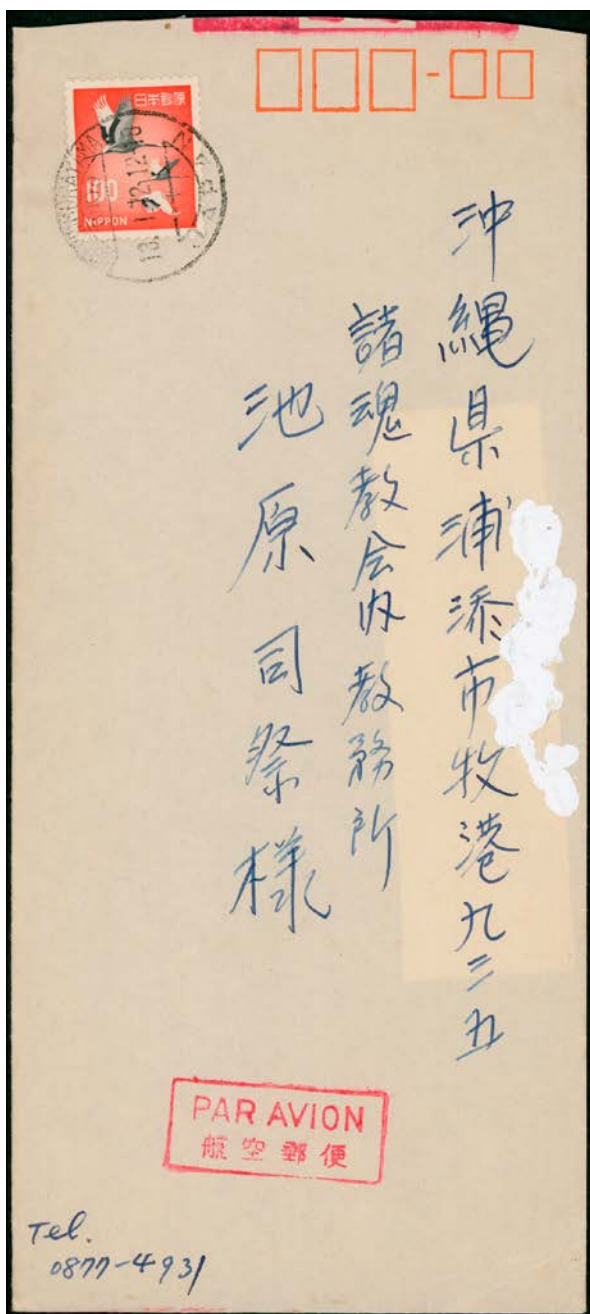 日本郵便
100
NIPPON
沖縄県浦添市牧港九三五
諸魂教会内教務所
池原司祭様
PAR AVION
航空郵便
Tel.
0877-4931